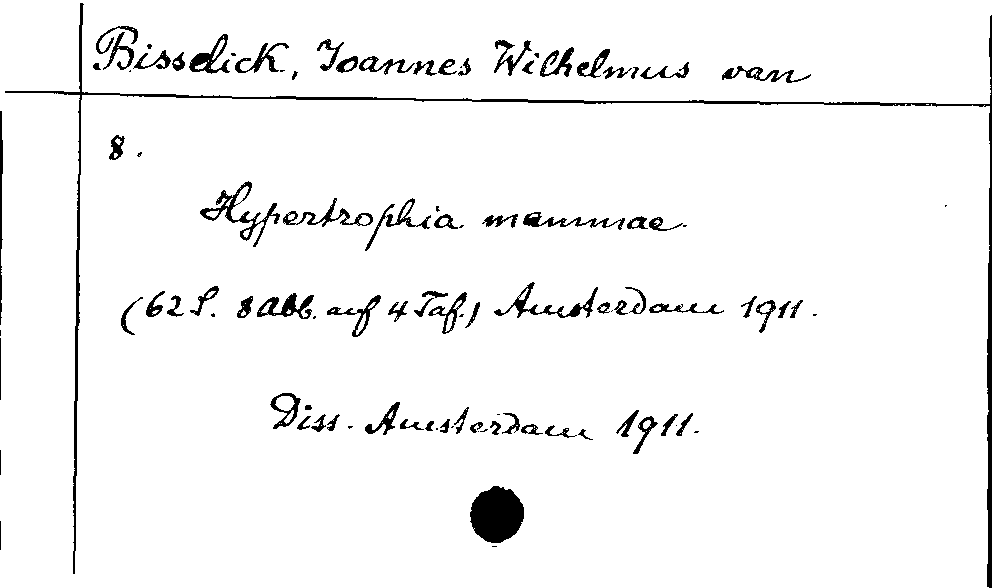 Bisselick, Joannes Wilhelmus van
8.
Hypertrophia mammae.
(62 S. 8 Abb. auf 4 Taf.) Amsterdam 1911.
Diss. Amsterdam 1911.